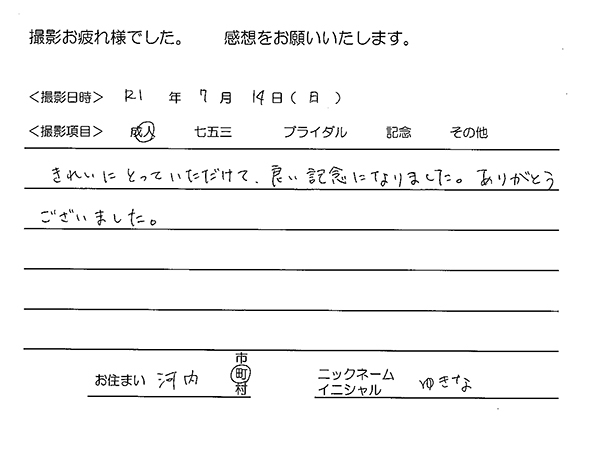 撮影お疲れ様でした。 感想をお願いいたします。
＜撮影日時＞ R1 年 7 月 14 日（ 日 ）
＜撮影項目＞ 成人 七五三 ブライダル 記念 その他
きれいにとっていただけて、良い記念になりました。ありがとう
ございました。
お住まい 河内 市 町 村
ニックネーム イニシャル ゆきな